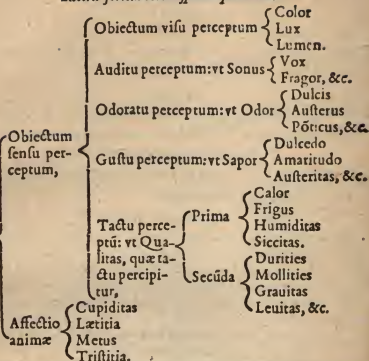 Obiectum visu perceptum
Color
Lux
Lumen.
Auditu perceptum: vt Sonus
Vox
Fragor, &c.
Odoratu perceptum: vt Odor
Dulcis
Austerus
Pōticus, &c.
Obiectum
sensu per-
ceptum,
Gustu perceptum: vt Sapor
Dulcedo
Amaritudo
Austeritas, &c.
Tactu perce-
ptū: vt Qua-
litas, quæ ta-
ctu percipi-
tur,
Prima
Calor
Frigus
Humiditas
Siccitas.
Secūda
Durities
Mollities
Grauitas
Leuitas, &c.
Affectio
animæ
Cupiditas
Lætitia
Metus
Tristitia.